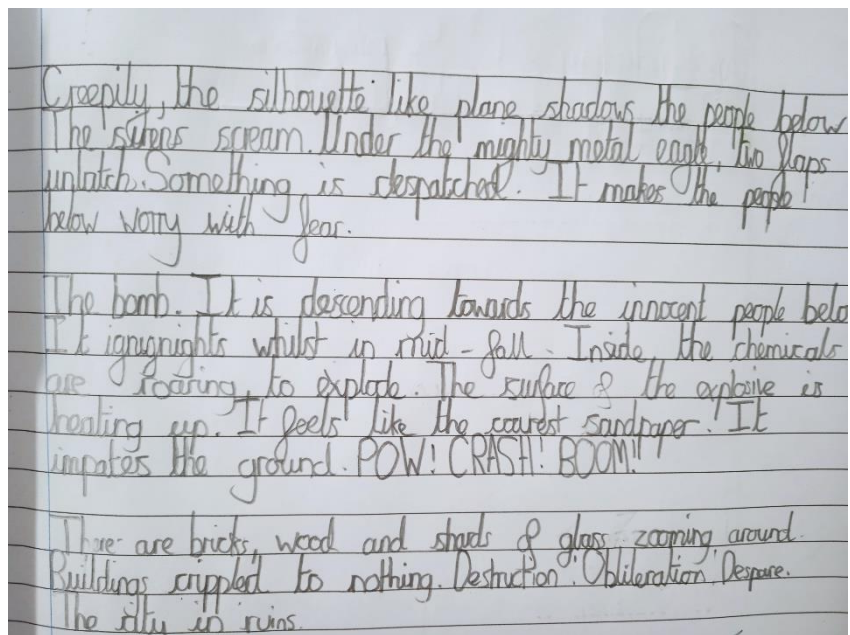 Creepily, the silhouette like plane shadows the people below
The sirens scream. Under the mighty metal eagle, two flaps
unlatch. Something is despatched. It makes the people
below worry with fear.
The bomb. It is descending towards the innocent people belo
It ignignights whilst in mid-fall. Inside, the chemicals
are roaring to explode. The surface of the explosive is
heating up. It feels like the coarest sandpaper. It
impates the ground. POW! CRASH! BOOM!
There are bricks, wood and shards of glass zooming around.
Buildings crippled to nothing. Destruction. Obliteration. Despare.
The city in ruins.